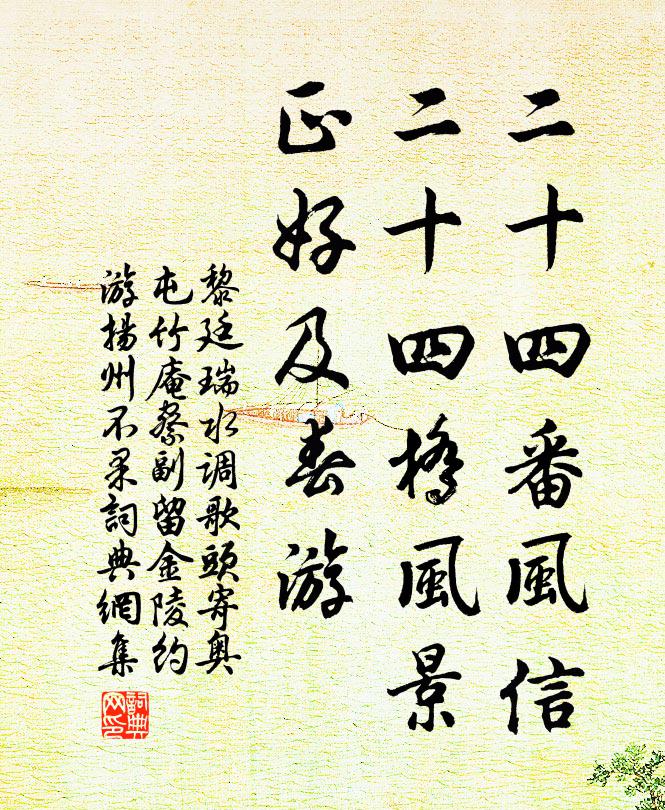 二十四番風信
二十四橋風景
正好及春游
黎廷瑞水调歌頭寄奥
屯竹庵察副留金陵约
游揚州不果詞典網集
詞典网印